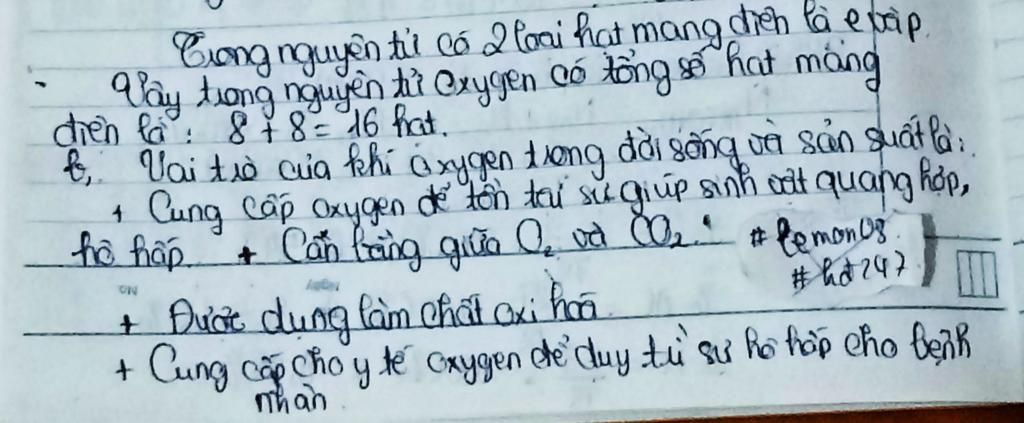 Trong nguyên tử có 2 loại hạt mang điện là e và p.
- Vậy trong nguyên tử Oxygen có tổng số hạt mang
điện là: 8 + 8 = 16 hạt.
b, Vai trò của khí oxygen trong đời sống và sản suất là:
+ Cung cấp oxygen để tồn tại sự giúp sinh vật quang hợp,
hô hấp + Cân bằng giữa O₂ và CO₂.
#lemon08
#hđ247
+ Được dụng làm chất oxi hoá
+ Cung cấp cho y tế oxygen để duy tủ sự hô hấp cho bệnh
nhân